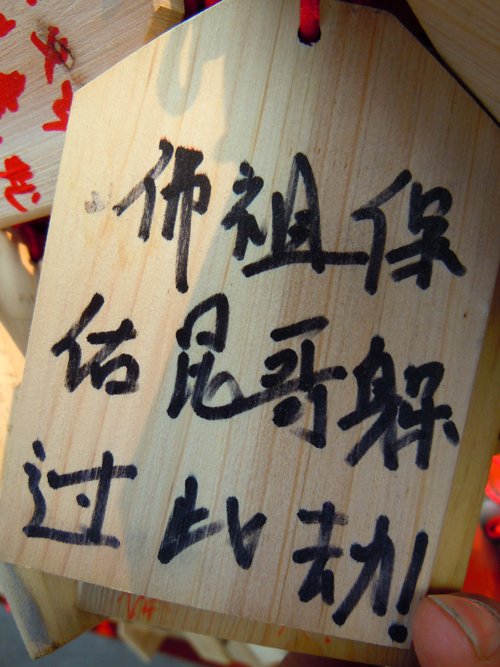 师祖保
佑昆哥躲
过此劫!